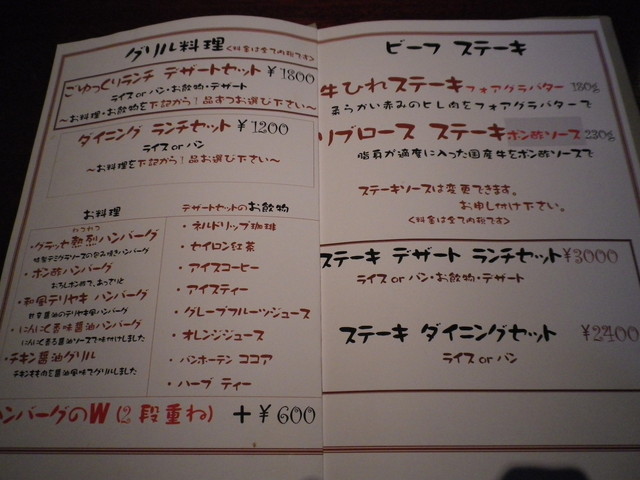 グリル料理 <料金は全て内税です>
ごゆっくりランチ デザートセット ¥1800
ライス or パン・お飲物・デザート
～お料理・お飲物を下記から1品ずつお選び下さい～
ダイニング ランチセット ¥1200
ライス or パン
～お料理を下記から1品お選び下さい～
お料理
・グラッセ熱烈ハンバーグ
・ポン酢ハンバーグ
おろしポン酢で、あっさりと
・和風テリヤキ ハンバーグ
・にんにく香味醤油ハンバーグ
にんにく香る醤油ソースで味付けしました
・チキン醤油グリル
チキンもも肉を醤油風味でグリルしました
デザートセットのお飲物
・ネルドリップ珈琲
・セイロン紅茶
・アイスコーヒー
・アイスティー
・グレープフルーツジュース
・オレンジジュース
・バンホーテン ココア
・ハーブ ティー
ハンバーグのW (2段重ね) +¥600
ビーフ ステーキ
牛ひれステーキフォアグラバター 180g
柔らかい赤みのヒレ肉をフォアグラバターで
リブロース ステーキポン酢ソース 230g
脂身が適度に入った国産牛をポン酢ソースで
ステーキソースは変更できます。
お申し付け下さい。
<料金は全て内税です>
ステーキ デザート ランチセット ¥3000
ライス or パン・お飲物・デザート
ステーキ ダイニングセット ¥2400
ライス or パン